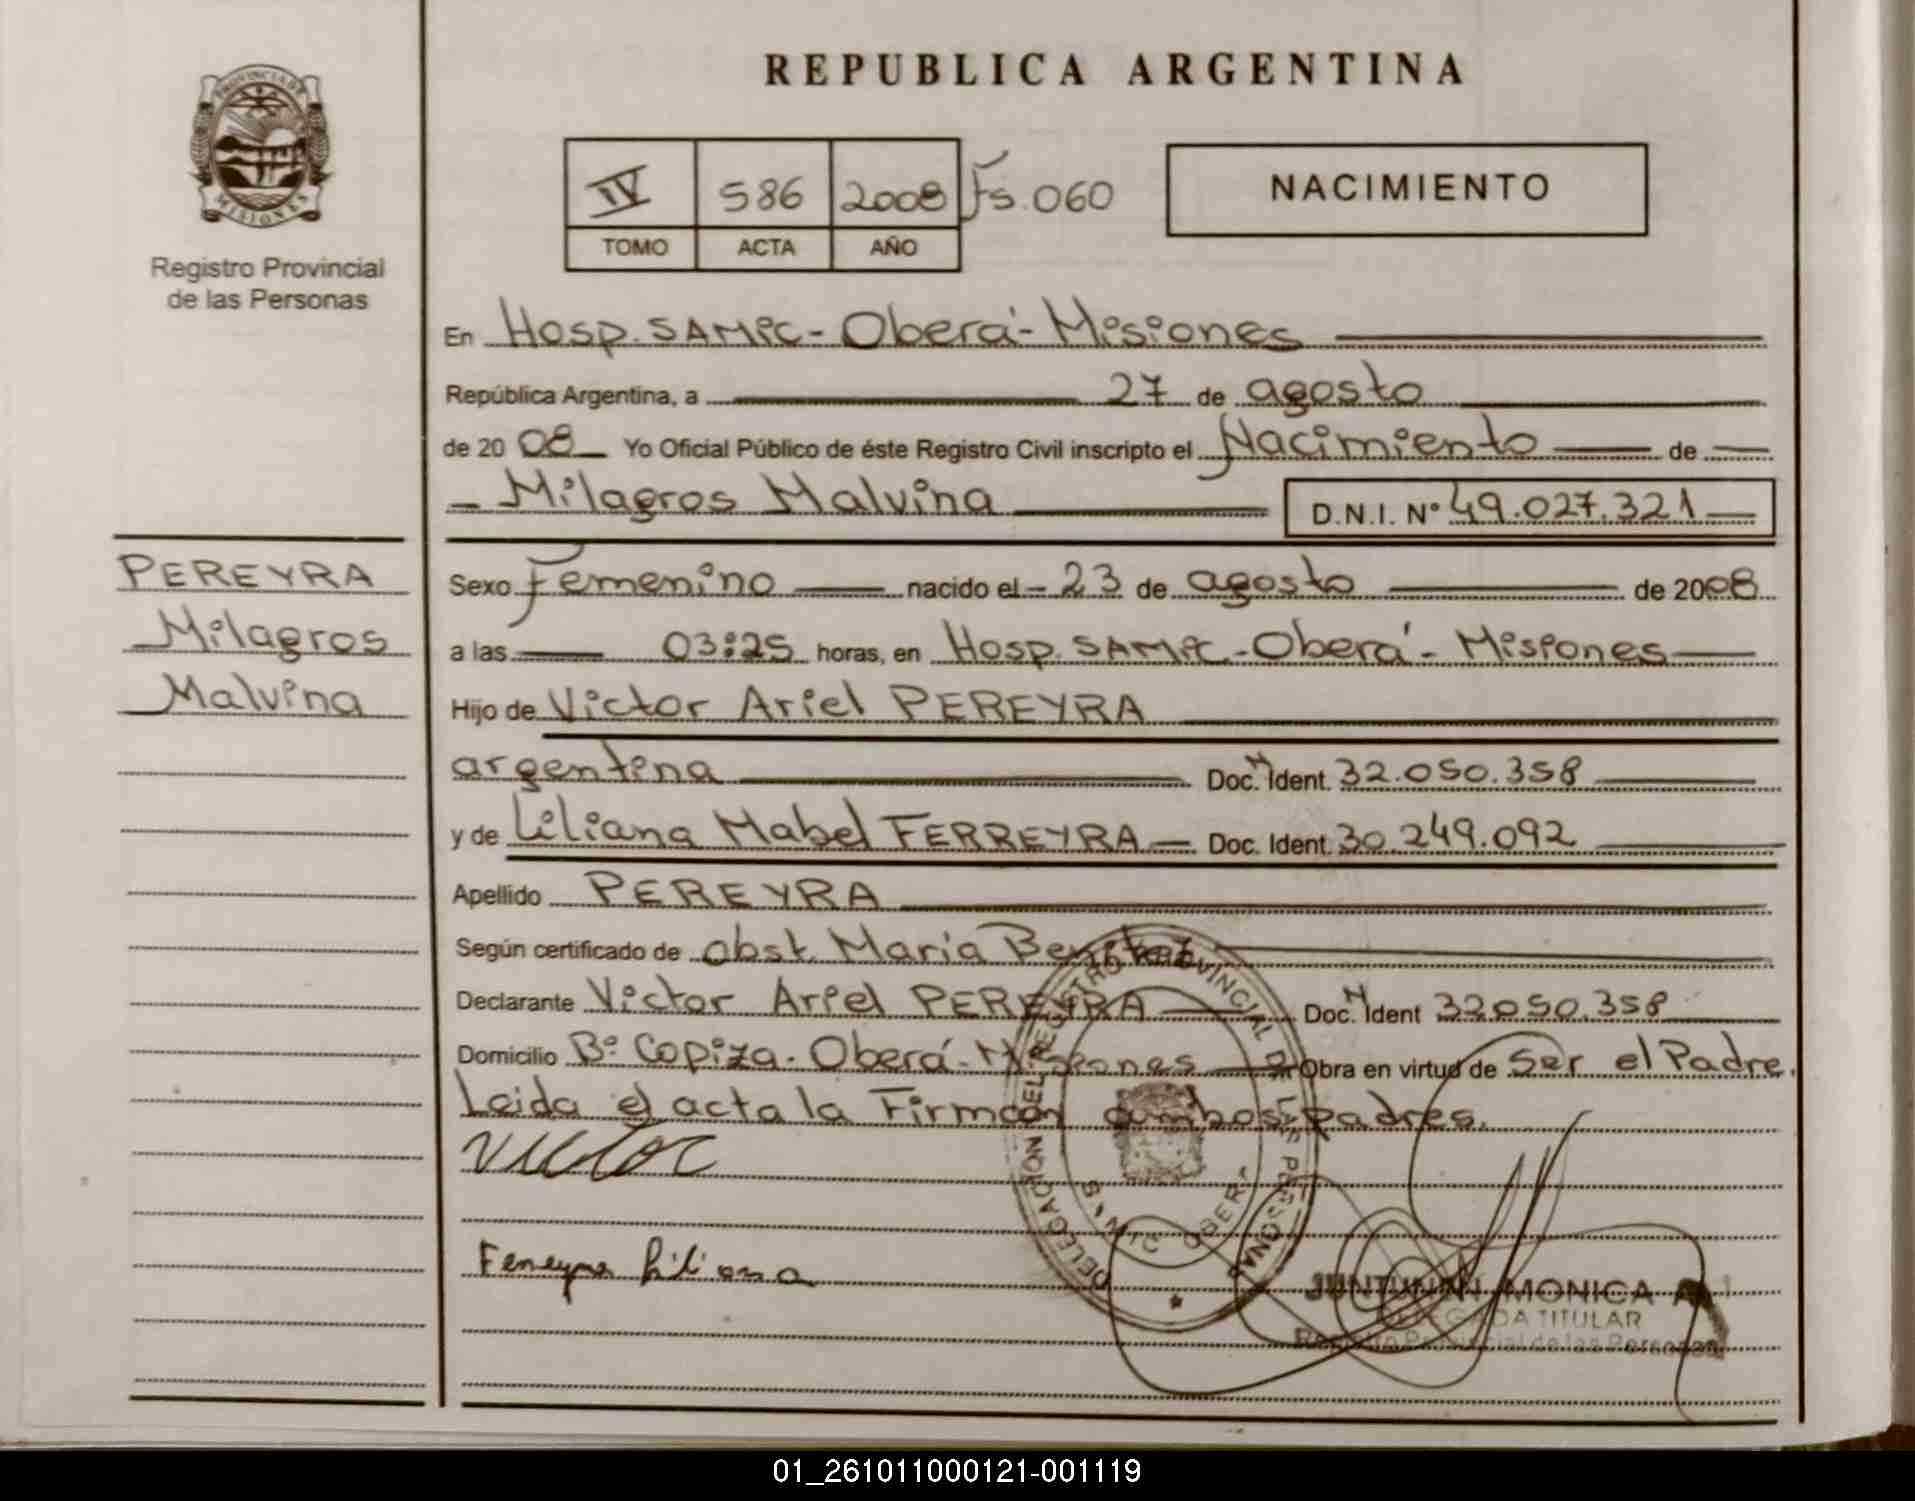 PROVINCIA DE
MISIONES
Registro Provincial
de las Personas
PEREYRA
Milagros
Malvina
REPUBLICA ARGENTINA
IV 586 2008 Fs.060
TOMO ACTA AÑO
NACIMIENTO
En Hosp. SAMIC - Oberá - Misiones
República Argentina, a 27 de agosto
de 2008 Yo Oficial Público de éste Registro Civil inscripto el Nacimiento de
Milagros Malvina D.N.I. Nº 49.027.321
Sexo Femenino nacido el 23 de agosto de 2008
a las 03:25 horas, en Hosp. SAMIC - Oberá - Misiones
Hijo de Victor Ariel PEREYRA
argentina Doc. N Ident. 32.050.358
y de Liliana Mabel FERREYRA Doc. Ident. 30.249.092
Apellido PEREYRA
Según certificado de obst. María Benitez
Declarante Victor Ariel PEREYRA Doc. N Ident 32.050.358
Domicilio Bº Copiza - Oberá - Misiones Obra en virtud de Ser el Padre.
Leida el acta la Firman ambos padres.
Victor
Ferreyra Liliana
DELEGACION DEL REGISTRO PROVINCIAL DE LAS PERSONAS
OBERA
MISIONES
MONICA
DELEGADA TITULAR
Registro Provincial de las Personas
01_261011000121-001119